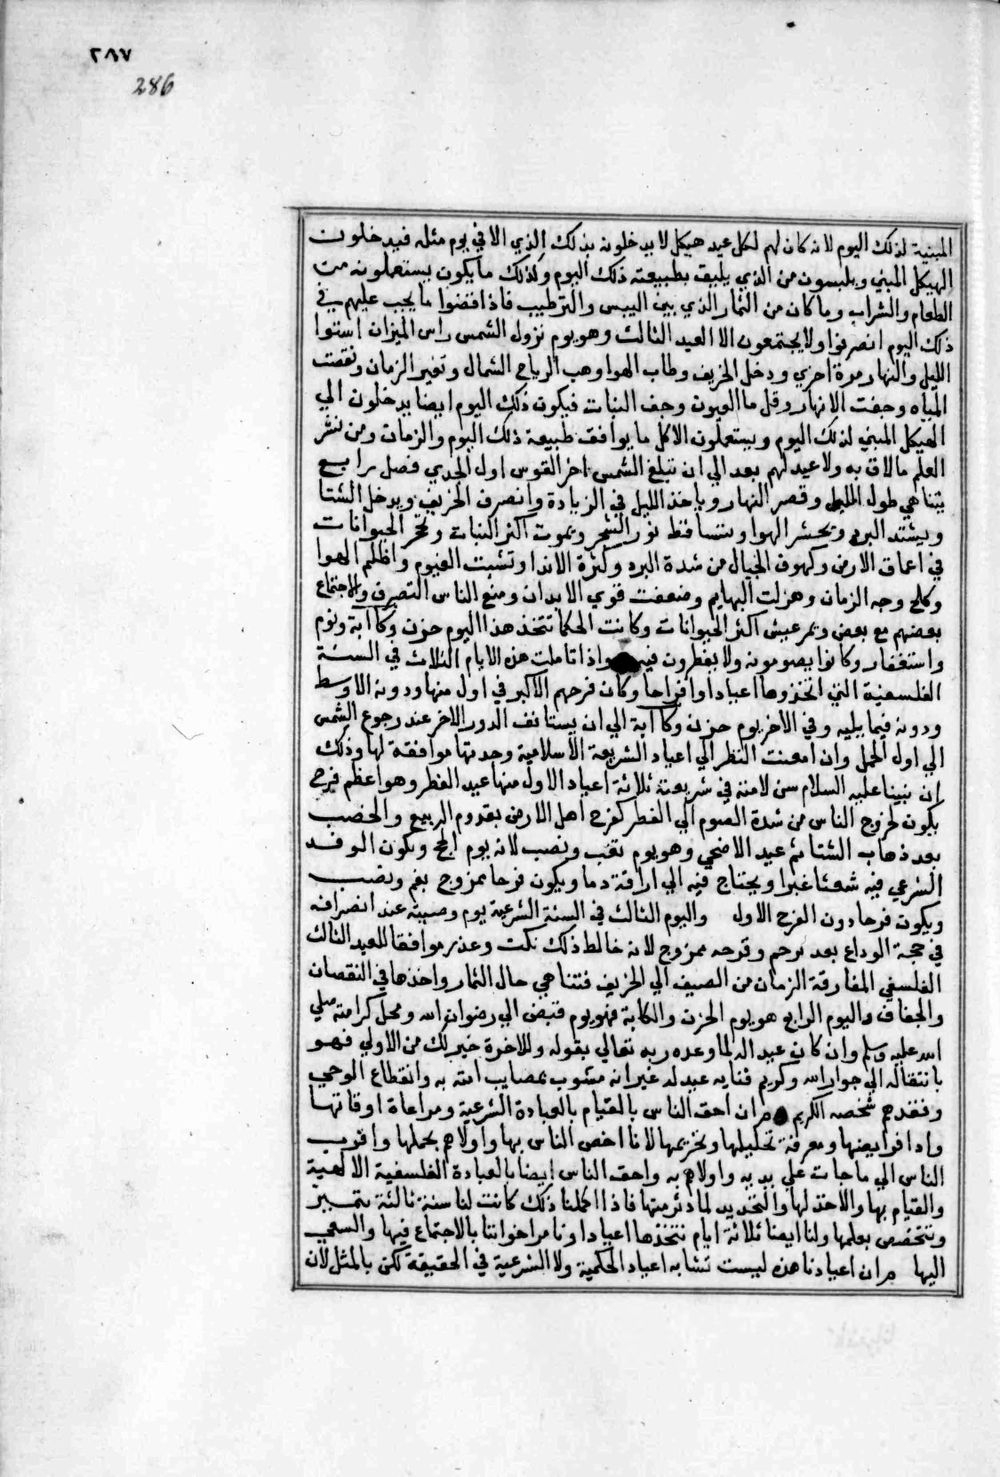 ٢٨٧
286
المبنية لذلك اليوم لانه كان لهم لكل عيد هيكل لا يدخلونه بذلك الذي الا في يوم مثله فيدخلون
الهيكل المبني ويلبسون من الذي يليق بطبيعته ذلك اليوم وكذلك ما يكون يستعملونه من
الطعام والشراب وما كان من الثمار الذي بين اليبس والترطيب فاذا قضوا ما يجب عليهم في
ذلك اليوم انصرفوا ولا يجتمعون الا العيد الثالث وهو يوم نزول الشمس راس الميزان استوا
الليل والنهار مرة اخري ودخل الخريف وطاب الهوا وهب الرياح الشمال وتغير الزمان ونقصت
المياه وجفت الانهار وقل ما العيون وجف النبات فيكون ذلك اليوم ايضا يدخلون الي
الهيكل المبني لذلك اليوم ويستعملون الاكل ما يوافق طبيعة ذلك اليوم والزمان ومن نشر
العلم ما لاق به ولا عيد لهم بعد الي ان تبلغ الشمس اخر القوس اول الجدي فصل رابع
يتناهي طول الليل وقصر النهار وياخذ الليل في الزيادة وانصرف الخريف ويدخل الشتا
ويشتد البرد ويخشر الهوا ويتساقط نور الشجر ويموت اكثر النبات وتحجر الحيوانات
في اعماق الارض وكهوف الجبال من شدة البرد وكثرة الاندا وتشبت الغيوم واظلم الهوا
وكلح وجه الزمان وهزلت البهايم وضعفت قوي الابدان ومنع الناس التصرف والاجتماع
بعضهم مع بعض ويمر عيش اكثر الحيوانات وكانت الحكما تتخذ هذا اليوم حزن وكآابة ونوم
واستغفار وكانوا يصومونه ولا يفطرون فيه واذا تاملت هذه الايام الثلاث في السنة
الفلسفية التي اتخذوها اعيادا وافراحا وكان فرحهم الاكبر في اول منها ودونه الاوسط
ودونه فيما يليه وفي الاخر يوم حزن وكآابة الي ان يستانف الدور الاخر عند رجوع الشمس
الي اول الحمل وان امعنت النظر الي اعياد الشريعة الاسلامية وجدتها موافقة لها وذلك
ان نبينا عليه السلام سن لامته في شريعته ثلاثة اعياد الاول منها عيد الفطر وهو اعظم فرح
يكون لخروج الناس من شدة الصوم الي الفطر كفرح اهل الارض بقدوم الربيع والخصب
بعد ذهاب الشتا ثم عيد الاضحي وهو يوم تعب ونصب لانه يوم الحج ويكون الوفد
الشرعي فيه شعثا غبرا ويحتاج فيه الي اراقة دما ويكون فرحا ممزوج بغم ونصب
ويكون فرحا دون الفرح الاول واليوم الثالث في السنة الشرعية يوم وصيته عند انصرافه
في حجة الوداع بغدير خم وفرحه ممزوج لانه خالط ذلك نكث وغدر موافقا للعيد الثالث
الفلسفي المفارقة الزمان من الصيف الي الخريف فتناهي حال الثمار واخذها في النقصان
والجفاف واليوم الرابع هو يوم الحزن والكابة فهو يوم قبض الي رضوان الله ومحل كرامته صلي
الله عليه وسلم وان كان عيد اله لما وعده ربه تعالي بقوله وللاخرة خير لك من الاولي فهو
بانتقاله الي جوار الله وكريم فنايه عيد له غير انه مشوب بمصايب امته به وانقطاع الوحي
وتفقدهم شخصه الكريم ثم ان احق الناس بالقيام بالعبادة الشرعية ومراعاة اوقاتها
وادا فرايضها ومعرفة تحليلها وتحريمها لانا اخص الناس بها واولاهم بحملها واقرب
الناس الي ما جات علي يديه واولاهم به واحق الناس ايضا بالعبادة الفلسفية الالهية
والقيام بها والاخذ لها والتجديد لما دثر منها فاذا اكملنا ذلك كانت لنا سنة ثالثة نتميز
ونتخصص بعلمها ولنا ايضا ثلاثة ايام نتخذها اعيادا ونامر اخواننا بالاجتماع فيها والسعي
اليها ثم ان اعيادنا هذه ليست تشابه اعياد الحكمية ولا الشرعية في الحقيقة لكن بالمثل لان